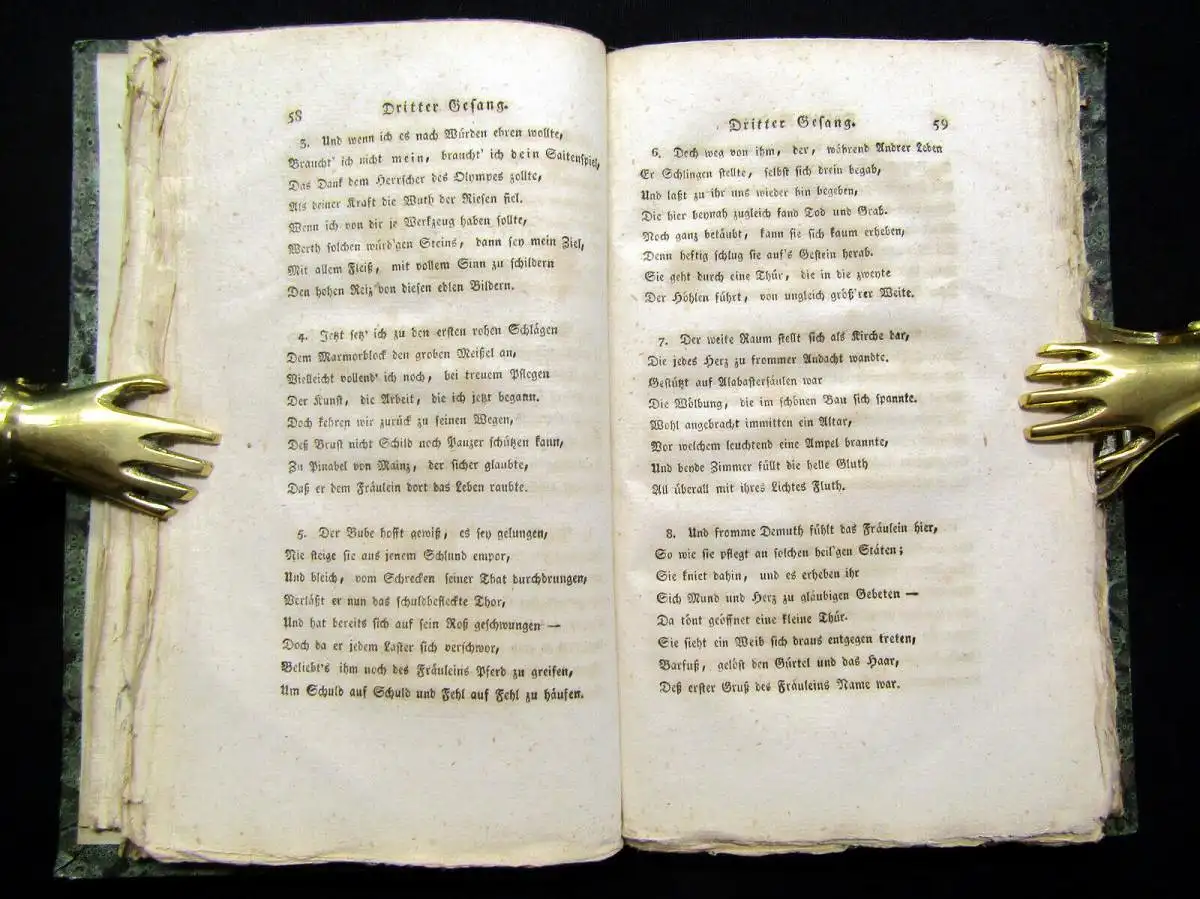 58
Dritter Gesang.
3. Und wenn ich es nach Würden ehren wollte,
Braucht' ich nicht mein, braucht' ich dein Saitenspiel,
Das Dank dem Herrscher des Olympes zollte,
Als deiner Kraft die Wuth der Riesen fiel.
Wenn ich von dir je Werkzeug haben sollte,
Werth solchen würd'gen Steins, dann sey mein Ziel,
Mit allem Fleiß, mit vollem Sinn zu schildern
Den hohen Reiz von diesen edlen Bildern.
4. Jetzt setz' ich zu den ersten rohen Schlägen
Dem Marmorblock den groben Meißel an,
Vielleicht vollend' ich noch, bei treuem Pflegen
Der Kunst, die Arbeit, die ich jetzt begann.
Doch kehren wir zurück zu seinen Wegen,
Deß Brust nicht Schild noch Panzer schützen kann,
Zu Pinabel von Mainz, der sicher glaubte,
Daß er dem Fräulein dort das Leben raubte.
5. Der Bube hofft gewiß, es sey gelungen,
Nie steige sie aus jenem Schlund empor,
Und bleich, vom Schrecken seiner That durchdrungen,
Verläßt er nun das schuldbefleckte Thor,
Und hat bereits sich auf sein Roß geschwungen —
Doch da er jedem Laster sich verschwor,
Beliebt's ihm noch des Fräuleins Pferd zu greifen,
Um Schuld auf Schuld und Fehl auf Fehl zu häufen.
Dritter Gesang.
59
6. Doch weg von ihm, der, während Andrer Leben
Er Schlingen stellte, selbst sich drein begab,
Und laßt zu ihr uns wieder hin begeben,
Die hier beynah zugleich fand Tod und Grab.
Noch ganz betäubt, kann sie sich kaum erheben,
Denn heftig schlug sie auf's Gestein herab.
Sie geht durch eine Thür, die in die zweyte
Der Höhlen führt, von ungleich größ'rer Weite.
7. Der weite Raum stellt sich als Kirche dar,
Die jedes Herz zu frommer Andacht wandte.
Gestützt auf Alabastersäulen war
Die Wölbung, die im schönen Bau sich spannte.
Wohl angebracht immitten ein Altar,
Vor welchem leuchtend eine Ampel brannte,
Und beyde Zimmer füllt die helle Gluth
All überall mit ihres Lichtes Fluth.
8. Und fromme Demuth fühlt das Fräulein hier,
So wie sie pflegt an solchen heil'gen Stäten;
Sie kniet dahin, und es erheben ihr
Sich Mund und Herz zu gläubigen Gebeten —
Da tönt geöffnet eine kleine Thür.
Sie sieht ein Weib sich draus entgegen treten,
Barfuß, gelöst den Gürtel und das Haar,
Deß erster Gruß des Fräuleins Name war.